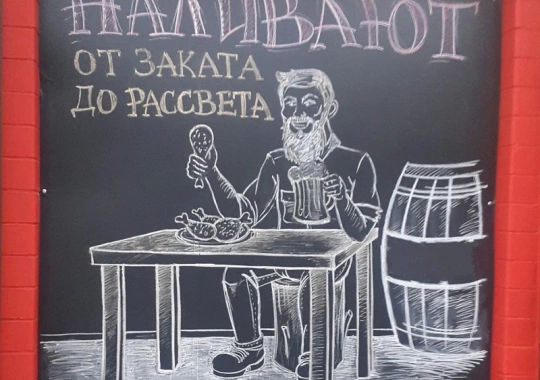 НАЛИВАЮТ
ОТ ЗАКАТА
ДО РАССВЕТА